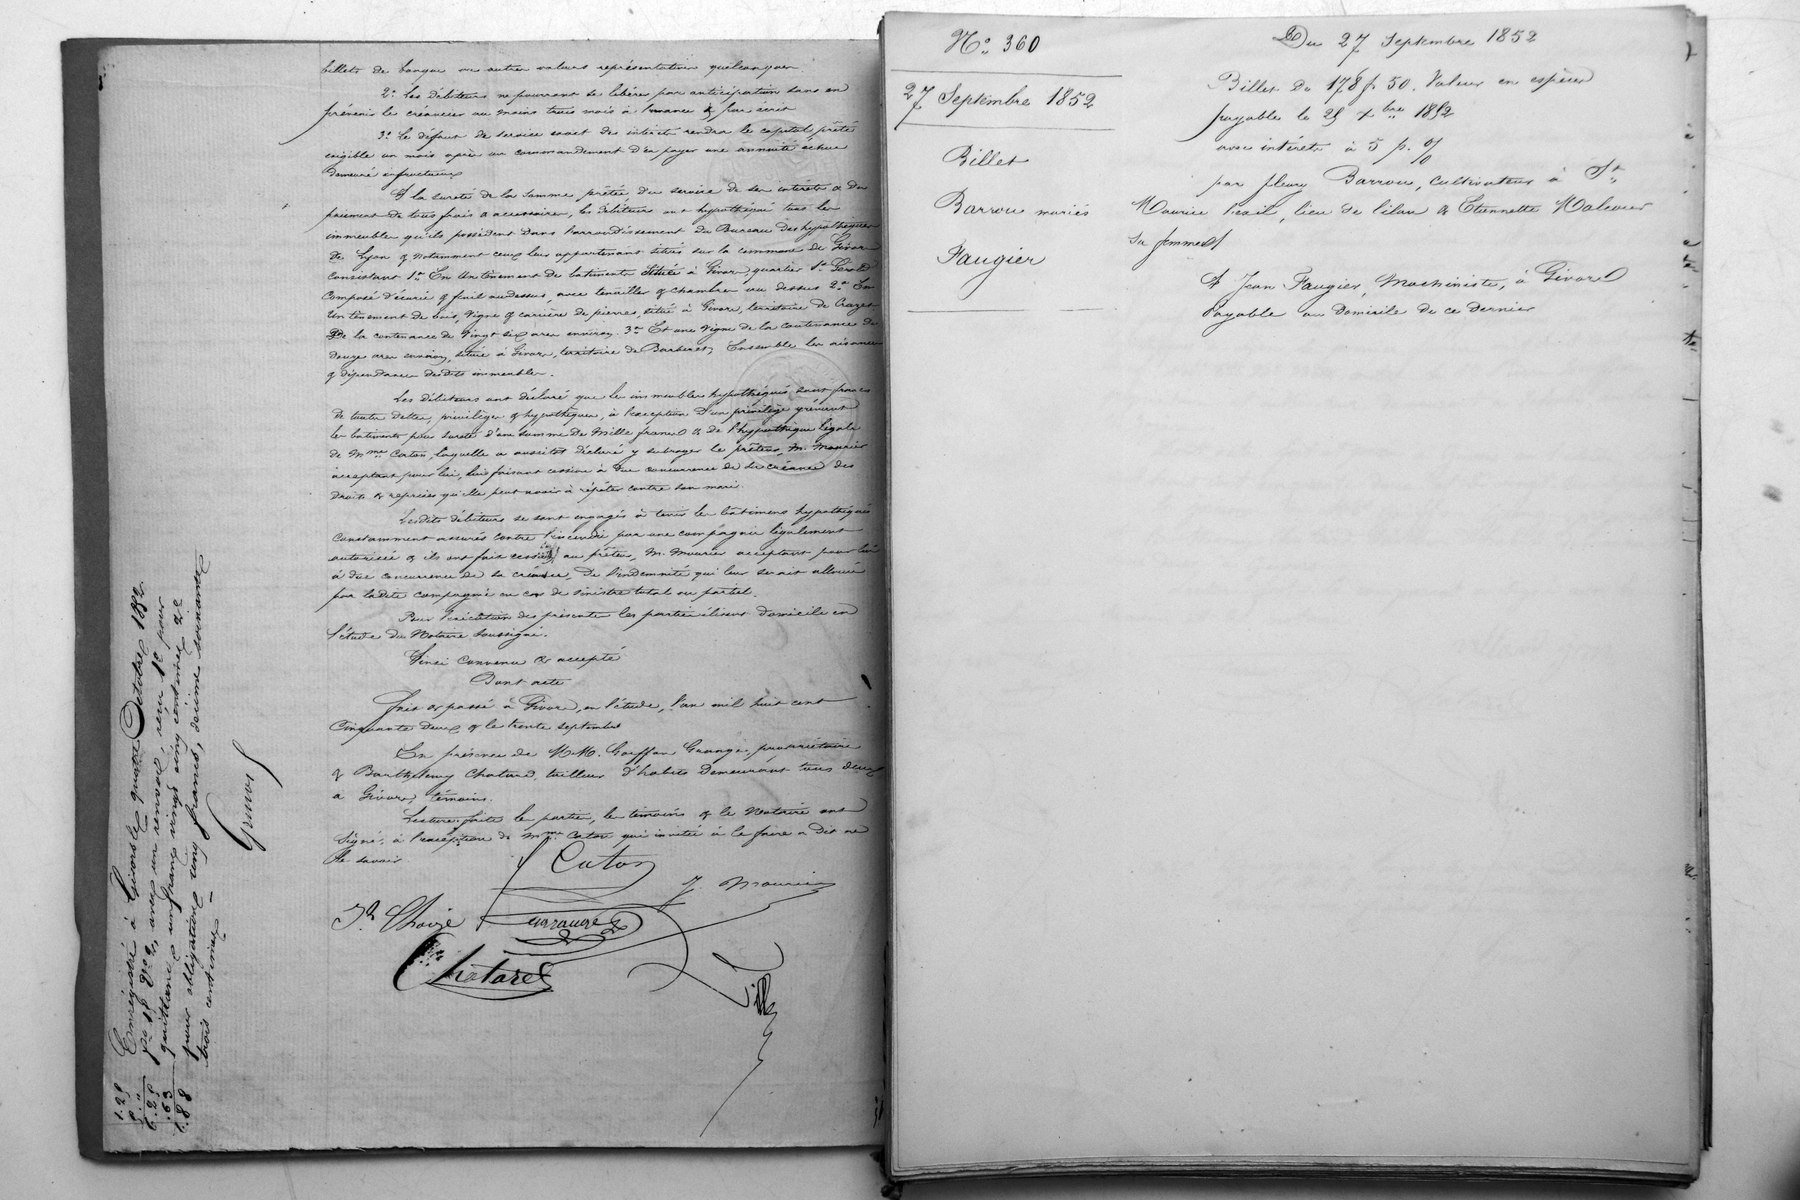 billets de banque ou autres valeurs représentatives quelconques
2° Les débiteurs ne pourront se libérer par anticipation sans en
prévenir le créancier au moins trois mois à l'avance & par écrit
3° Le défaut de service exact des intérêts rendra le capital prêté
exigible un mois après un commandement d'en payer une annuité échue
demeuré infructueux
A la sureté de la somme prêtée du service de ses intérêts & du
paiement de tous frais & accessoires, les débiteurs ont hypothéqué tous les
immeubles qu'ils possèdent dans l'arrondissement du Bureau des hypothèques
de Lyon & notamment ceux leur appartenant situés sur la commune de Givors
Consistant 1° En un tènement de batiments situés à Givors quartier St Gerald
Composé d'écurie & fenil au dessus, avec tenailler & chambre au dessus 2° En
un tènement de bois, vigne & carrière de pierres, situé à Givors, territoire de Crozes
De la contenance de vingt six ares environ 3° Et une vigne de la contenance de
douze ares environ, située à Givors, territoire de Barberet, Ensemble les aisances
& dépendances desdits immeubles.
Les débiteurs ont déclaré que les immeubles hypothéqués sont francs
de toutes dettes, privilèges & hypothèques, à l'exception d'un privilège grévant
les batiments pour sureté d'une somme de Mille francs & de l'hypothèque légale
de Mme Caton, laquelle a aussitot déclaré y subroger le prêteur, M. Mourier
acceptant pour lui, lui faisant cession à due concurrence de sa créance des
droits & reprises qu'elle peut avoir à répéter contre son mari.
Lesdits débiteurs se sont engagés à tenir les bâtimens hypothéqués
Constamment assurés contre l'incendie par une compagnie légalement
autorisée & ils ont fait cession au prêteur, M. Mourier acceptant pour lui
à due concurrence de sa créance, de l'indemnité qui leur serait allouée
par ladite compagnie en cas de sinistre total ou partiel.
Pour l'exécution des présentes les parties élisent domicile en
l'étude du Notaire soussigné.
Ainsi convenu & accepté
Dont acte
Fait & passé à Givors, en l'étude, l'an mil huit cent
Cinquante deux & le trente septembre
En présence de MM. Goiffon Grange, propriétaire
& Barthélemy Chatard, tailleur d'habits demeurant tous deux
à Givors, témoins.
Lecture faite les parties, les témoins & le Notaire ont
signé, à l'exception de Mme Caton qui invitée à le faire a dit ne
le savoir
Caton
J. Mourier
Chatard
Enregistré à Givors le quatre Octobre 1852
avec un renvoi, reçu 1° pour
quittance un franc vingt cinq centimes 2°
pour obligation cinq francs, décime soixante
trois centimes
1.25
5 "
6.25
.63
6.88
N° 360
27 Septembre 1852
Billet
Barrou mariés
Faugier
Du 27 Septembre 1852
Billet de 178 f. 50. Valeur en espèces
payable le 25 Xbre 1852
avec intérêts à 5 p. %
par fleury Barrou, Cultivateur à St
Maurice
& Etiennette
sa femme
A Jean Faugier, Machiniste, à Givors
Payable au Domicile de ce dernier